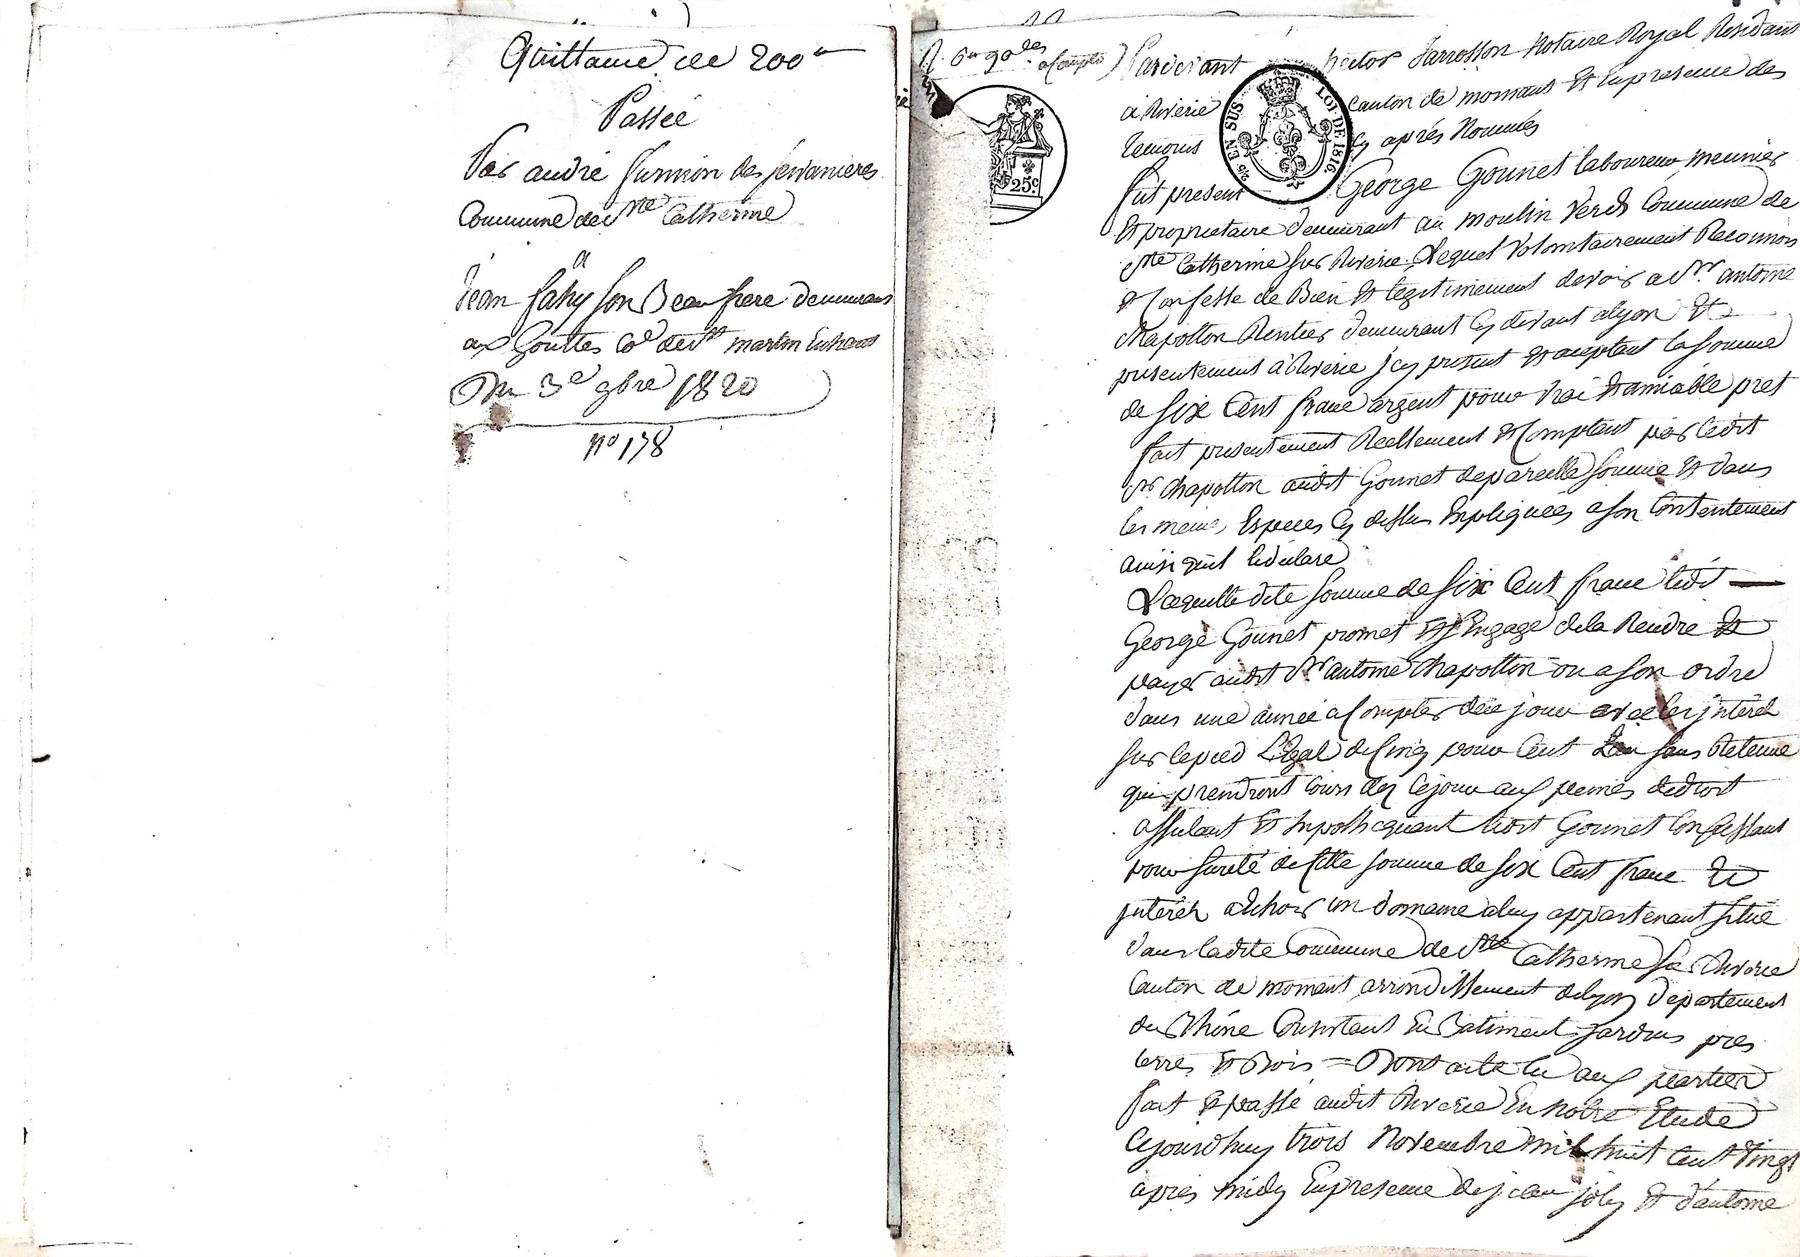 Quittance de 200 #
Passée
Par andré furnion des jervanieres
Commune de Ste Catherine
a
Jean fahy son Beaufrere demeurans
aux Gouttes Co.e de St martin Enhaut
Du 3e 9bre 1820
no 178
Pardevant hector Jarrosson Notaire Royal Residant
a Riverie Canton de mornant Et En presence des
temoins Cy aprés Nommés
EN SUS LOI DE 1816
25c
fut present George Gounet laboureur meunier
Et proprietaire demeurant au moulin Verd Commune de
Ste Catherine sur Riverie. Lequel Volontairement Reconnois
& Confesse de Bien & légitimement devoir a Sr. antoine
chapotton Rentier demeurant Cy devant a lyon Et
presentement à Riverie j'cy présent & aceptant la somme
de six Cent franc argent pour vrai & amiable pret
fait presentement Reellement & Comptant par ledit
Sr chapotton audit Gounet de pareille somme & dans
les meme Especes Cy dessus Expliquées a son Contentement
ainsi qu'il le déclare
Laquelle dite somme de six Cent franc ledit
George Gounet promet & s'Engage de la Rendre &
payer audit Sr antoine Chapotton ou a son ordre
dans une année a Compter de ce jour avec les jnterêt
sur le pied Légal de Cinq pour Cent sans Retenue
qui prendront Cours dez Cejour aux peines de droit
affectant Et hypothequant ledit Gounet Confessant
pour sureté de cette somme de six Cent franc Et
jnterêt a Echoir un domaine a luy appartenant situé
dans ladite Commune de Ste Catherine sur Riverie
Canton de mornant arrondissement de lyon département
du Rhône Consistant En Batiment jardins prés
terres & Bois = Dont acte lu aux parties
fait & passé audit Riverie En notre Etude
Cejourd'huy trois Novembre mil huit Cent Vingt
apres midy En presence de jean joly & d'antoine